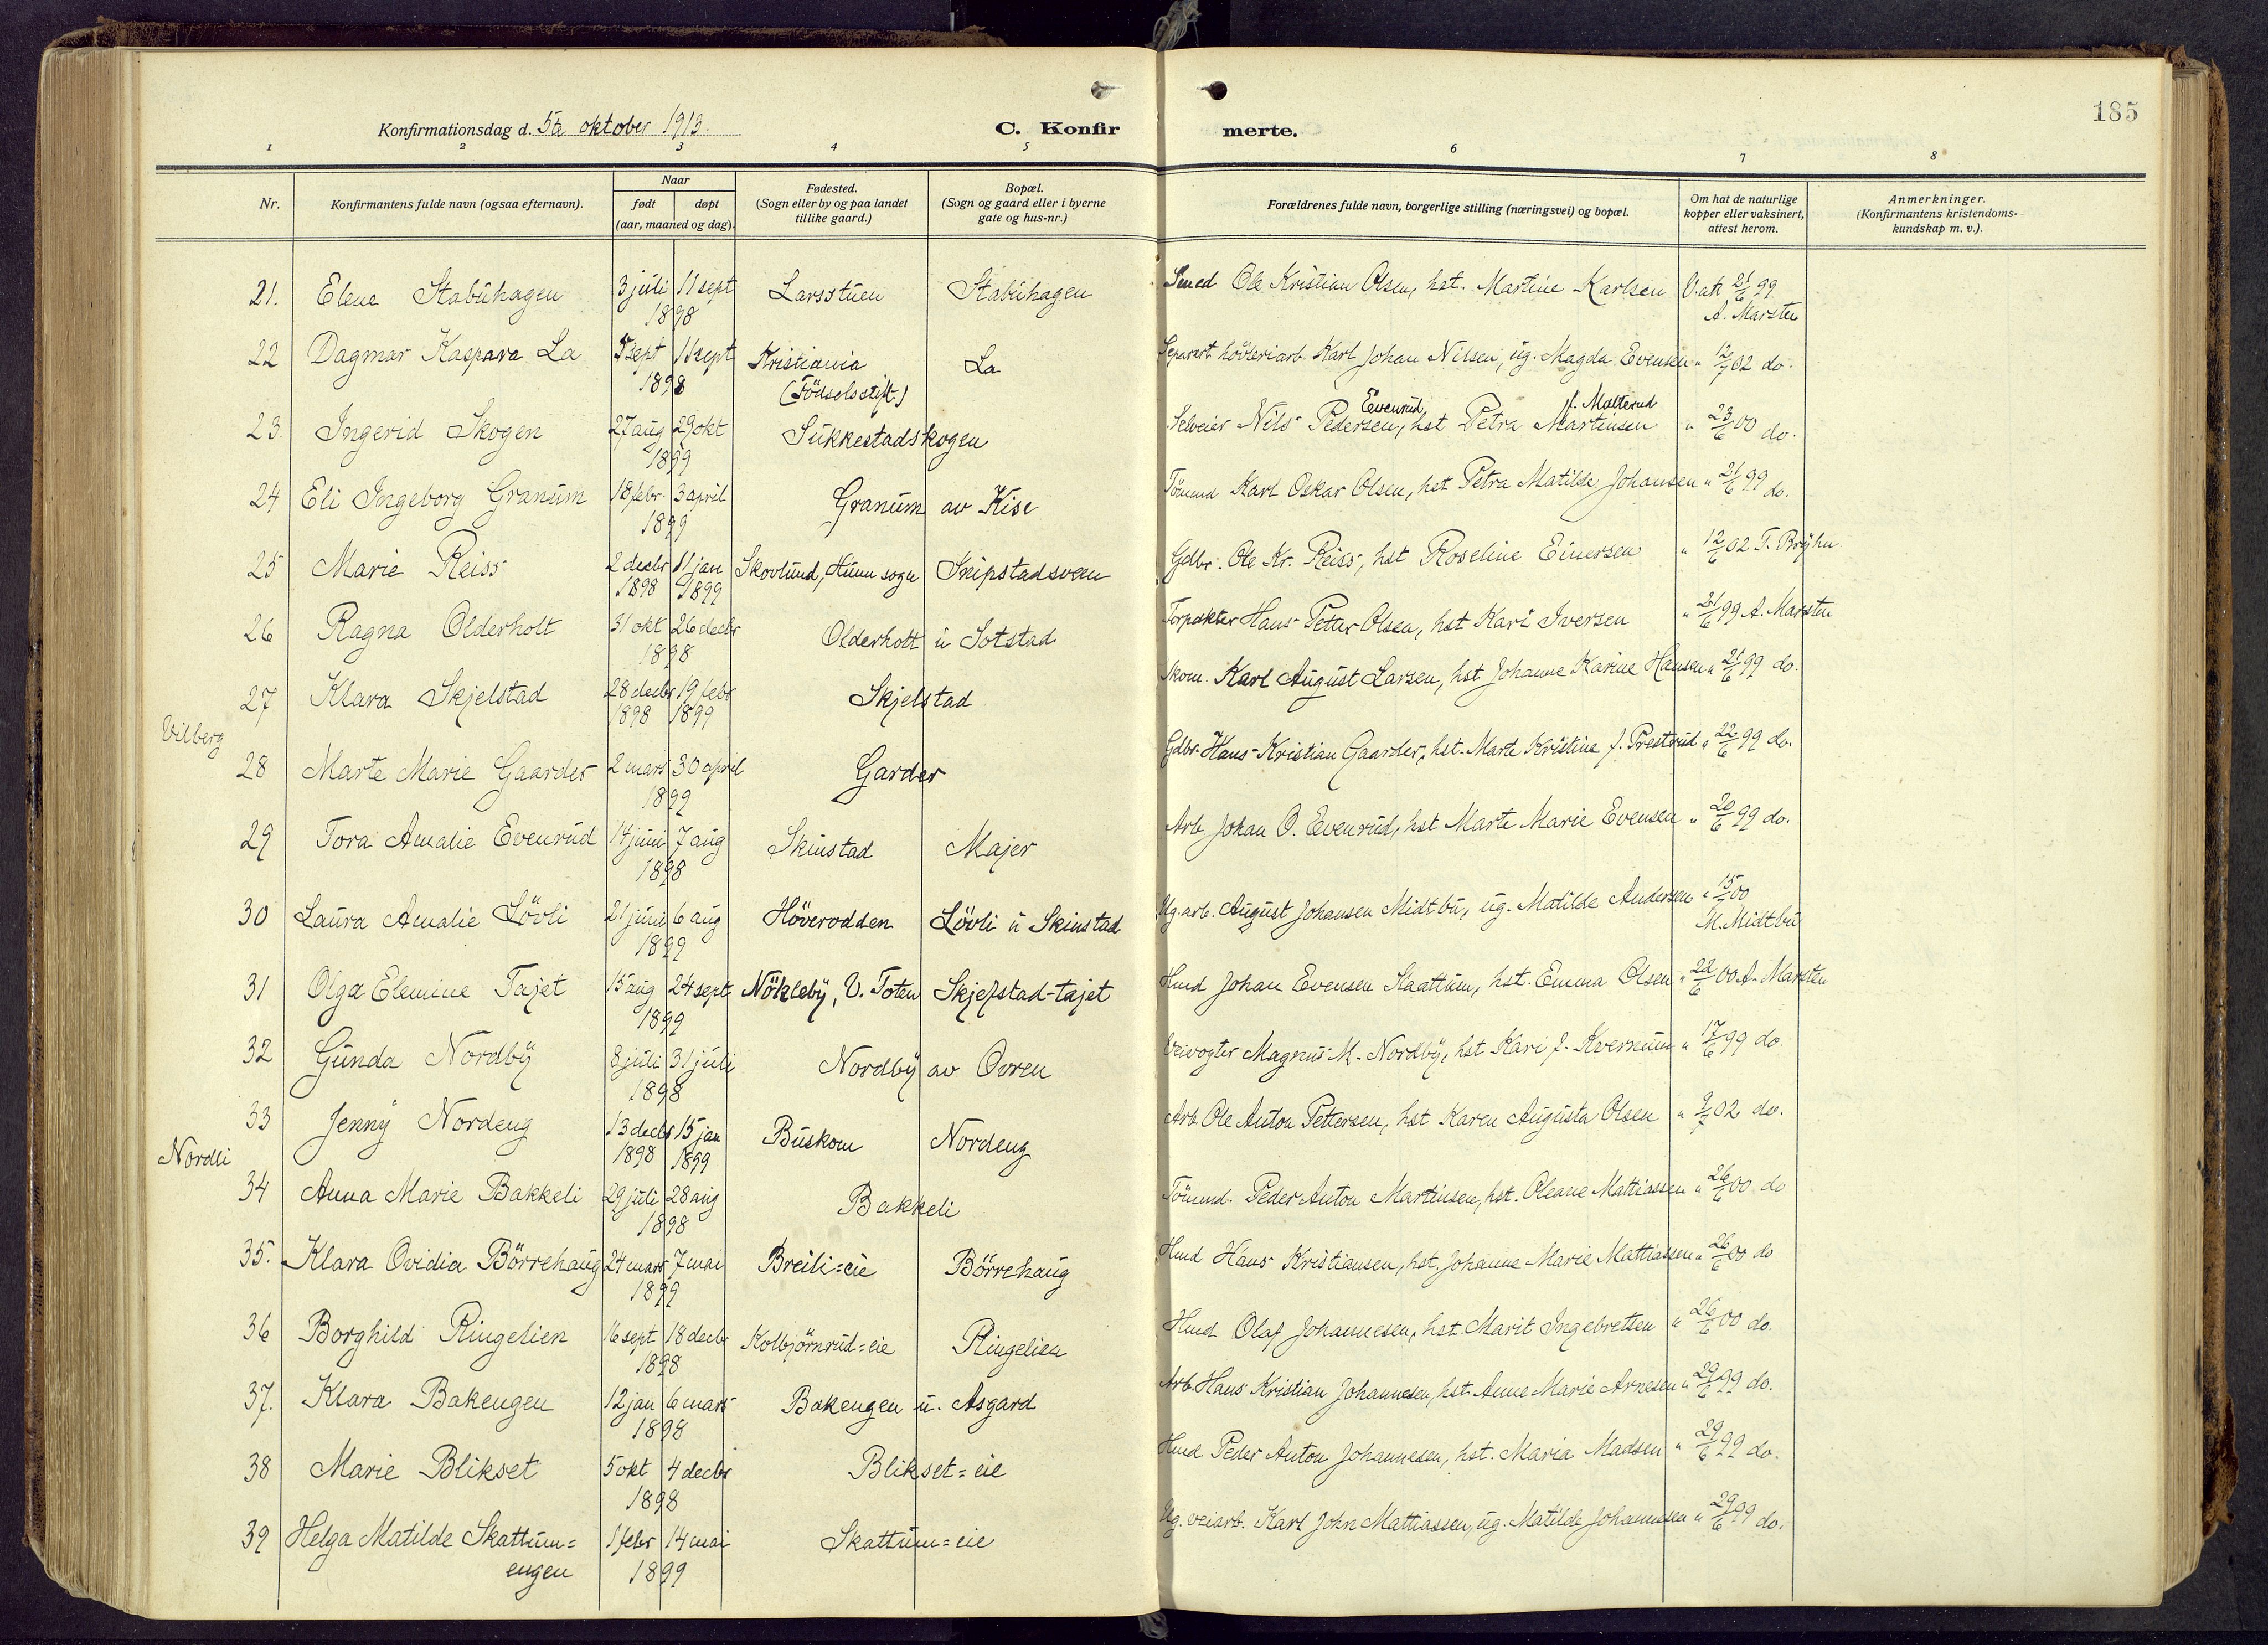 185
Konfirmationsdag d. 5te oktober 1913.
C. Konfirmerte.
1 2 3 4 5 6 7 8
Nr.
Konfirmantens fulde navn (ogsaa efternavn).
Naar
født døpt
(aar, maaned og dag).
Fødested.
(Sogn eller by og paa landet
tillike gaard.)
Bopæl.
(Sogn og gaard eller i byerne
gate og hus-nr.)
Forældrenes fulde navn, borgerlige stilling (næringsvei) og bopæl.
Om hat de naturlige
kopper eller vaksinert,
attest herom.
Anmerkninger.
(Konfirmantens kristendoms-
kundskap m. v.).
21. Elene Stabuhagen 3 juli 11 sept Larsstuen Stabuhagen Smed Ole Kristian Olsen, hst. Martine Karlsen V. at 21/6 99
1898 A. Marsten
22 Dagmar Kaspara La sept sept Kristiania La Separert høvleriarb. Karl Johan Nilsen, ug. Magda Evensen " 12/7 02 do.
1898 (Fødselsstift.)
Evenrud f. Molterud
23. Ingerid Skogen 27 aug 29 okt Sukkestadskogen Selveier Nils Pedersen, hst Petra Martinsen " 23/6 00 do.
1899
24 Eli Ingeborg Granum 18 febr 3 april Granum av Kise Tömmd Karl Oskar Olsen, hst Petra Matilde Johansen " 21/6 99 do.
1899
25 Marie Reiss 2 decbr 11 jan Skovlund, Hunn sogn Snipstadsveen Gdbr. Ole Kr. Reiss, hst Roseline Einersen " 12/6 02 T. Bryhn
1898 1899
26 Ragna Olderholt 31 okt 26 decbr Olderholt u Sotstad Forpakter Hans Petter Olsen, hst Kari Iversen " 21/6 99 A. Marsten
1898
27 Klara Skjelstad 28 decbr 19 febr Skjelstad Skom. Karl August Larsen, hst. Johanne Karine Hansen " 21/6 99 do.
1898 1899
Vilberg
28 Marte Marie Gaarder 2 mars 30 april Garder Gdbr. Hans Kristian Gaarder, hst. Marte Kristine f. Prestrud " 22/6 99 do.
1899
29 Tora Amalie Evenrud 14 juni 7 aug Skinstad Majer Arb. Johan O. Evenrud, hst Marte Marie Evensen " 20/6 99 do.
1898
30 Laura Amalie Lövli 21 juni 6 aug Höverodden Lövli u Skinstad Ug. arb. August Johansen Midtbu, ug. Matilde Andersen " 15/ 00
1899 M. Midtbu
31 Olga Elemine Tajet 15 aug 24 sept Nökleby, V. Toten Skjelstad-tajet Hmd Johan Evensen Skattum, hst. Emma Olsen " 22/6 00 A. Marsten
1899
32 Gunda Nordby 8 juli 31 juli Nordby av Ovren Veivogter Magnus M. Nordby, hst Kari f. Kvernum " 17/6 99 do.
1898
33 Jenny Nordeng 13 decbr 15 jan Buskom Nordeng Arb. Ole Anton Pettersen, hst Karen Augusta Olsen " 9/7 02 do.
1898 1899
Nordli
34 Anna Marie Bakkeli 29 juli 28 aug Bakkeli Tömmd. Peder Anton Martinsen, hst. Oleane Mattiassen " 26/6 00 do
1898
35. Klara Ovidia Börrehaug 24 mars 7 mai Breili=eie Börrehaug Hmd Hans Kristiansen, hst. Johanne Marie Mattiassen " 26/6 00 do
1899
36 Borghild Ringelien 16 sept 18 decbr Kolbjörnrud=eie Ringelien Hmd Olaf Johannesen, hst. Marit Ingebretsen " 26/6 00 do.
1898
37. Klara Bakengen 12 jan 6 mars Bakengen u. Asgard Arb. Hans Kristian Johannesen, hst. Anne Marie Arnesen " 29/6 99 do.
1898
38 Marie Blikset 5 okt 4 decbr Blikset=eie Hmd Peder Anton Johannesen, hst. Maria Madsen " 29/6 99 do.
1898
39 Helga Matilde Skattum= 1 febr 14 mai Skattum=eie Ug. veiarb. Karl John Mattiassen, ug. Matilde Johannesen " 29/6 99 do.
engen 1899